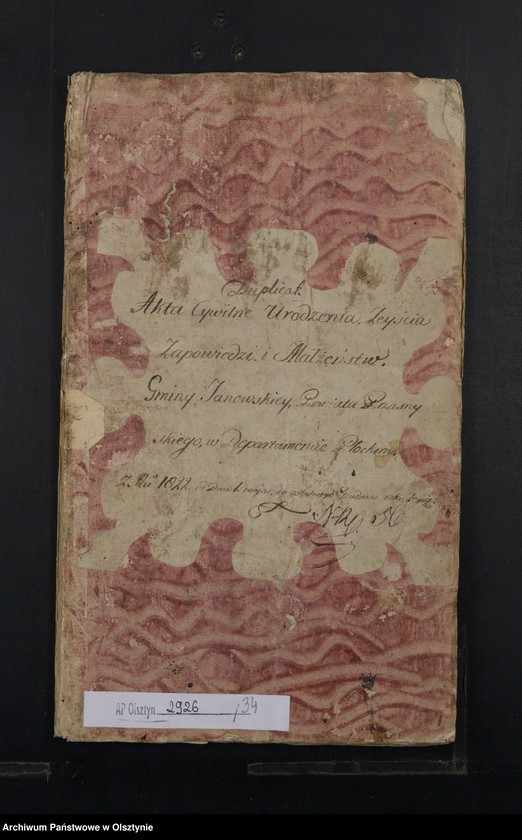 Duplicat
Akta Cywilne Urodzenia, Zeyścia
Zapowiedzi i Małżeństw.
Gminy Janowskiey, Powiata Przasny
skiego, w Departamencie Płockim
Z Ru 1822 od dnia 1. maja, do
No
AP Olsztyn 2926 /34
Archiwum Państwowe w Olsztynie